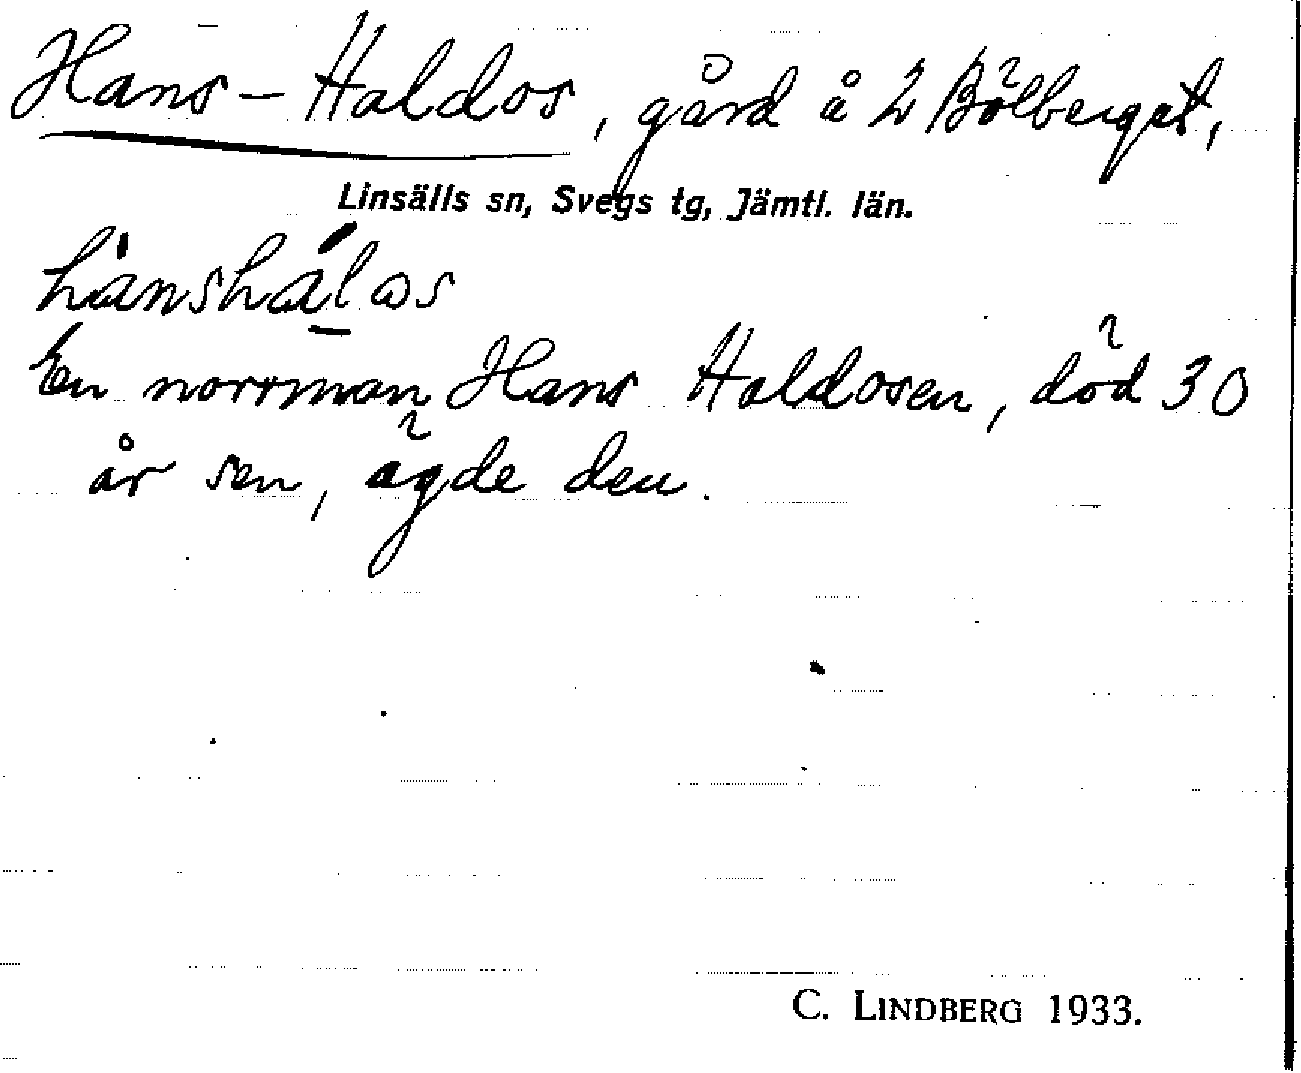 Hans-Haldos, gård å 2 Bölberget,
Linsälls sn, Svegs tg, Jämtl. län.
hànshá̱lɷs
En norrman Hans Haldosen, död 30
år sen, ägde den.
C. LINDBERG 1933.